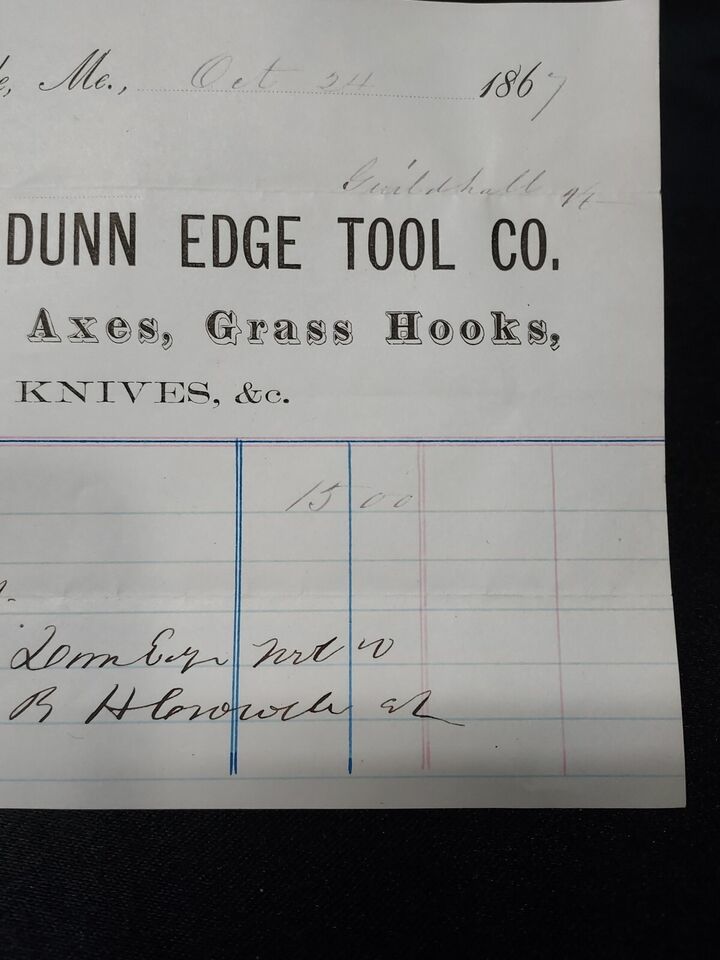 Me., Oct 24 1867
Guildhall
DUNN EDGE TOOL CO.
Axes, Grass Hooks,
KNIVES, &c.
15 00
Dunn Edge
B H